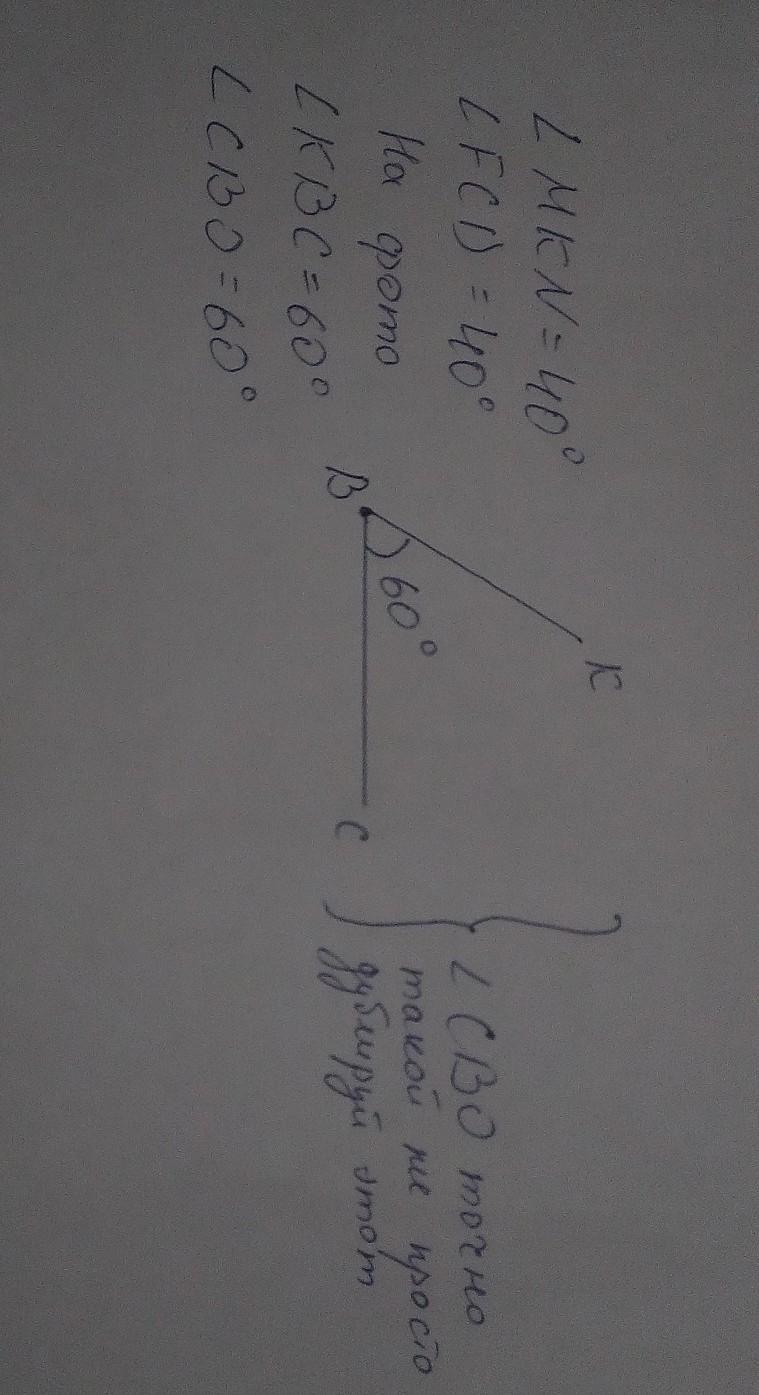 ∠ MKN = 40°
∠ FCD = 40°
На фото
∠ KBC = 60°
∠ CBO = 60°
K
60°
B
C
∠ CBO точно
такой же просто
дублируй этот